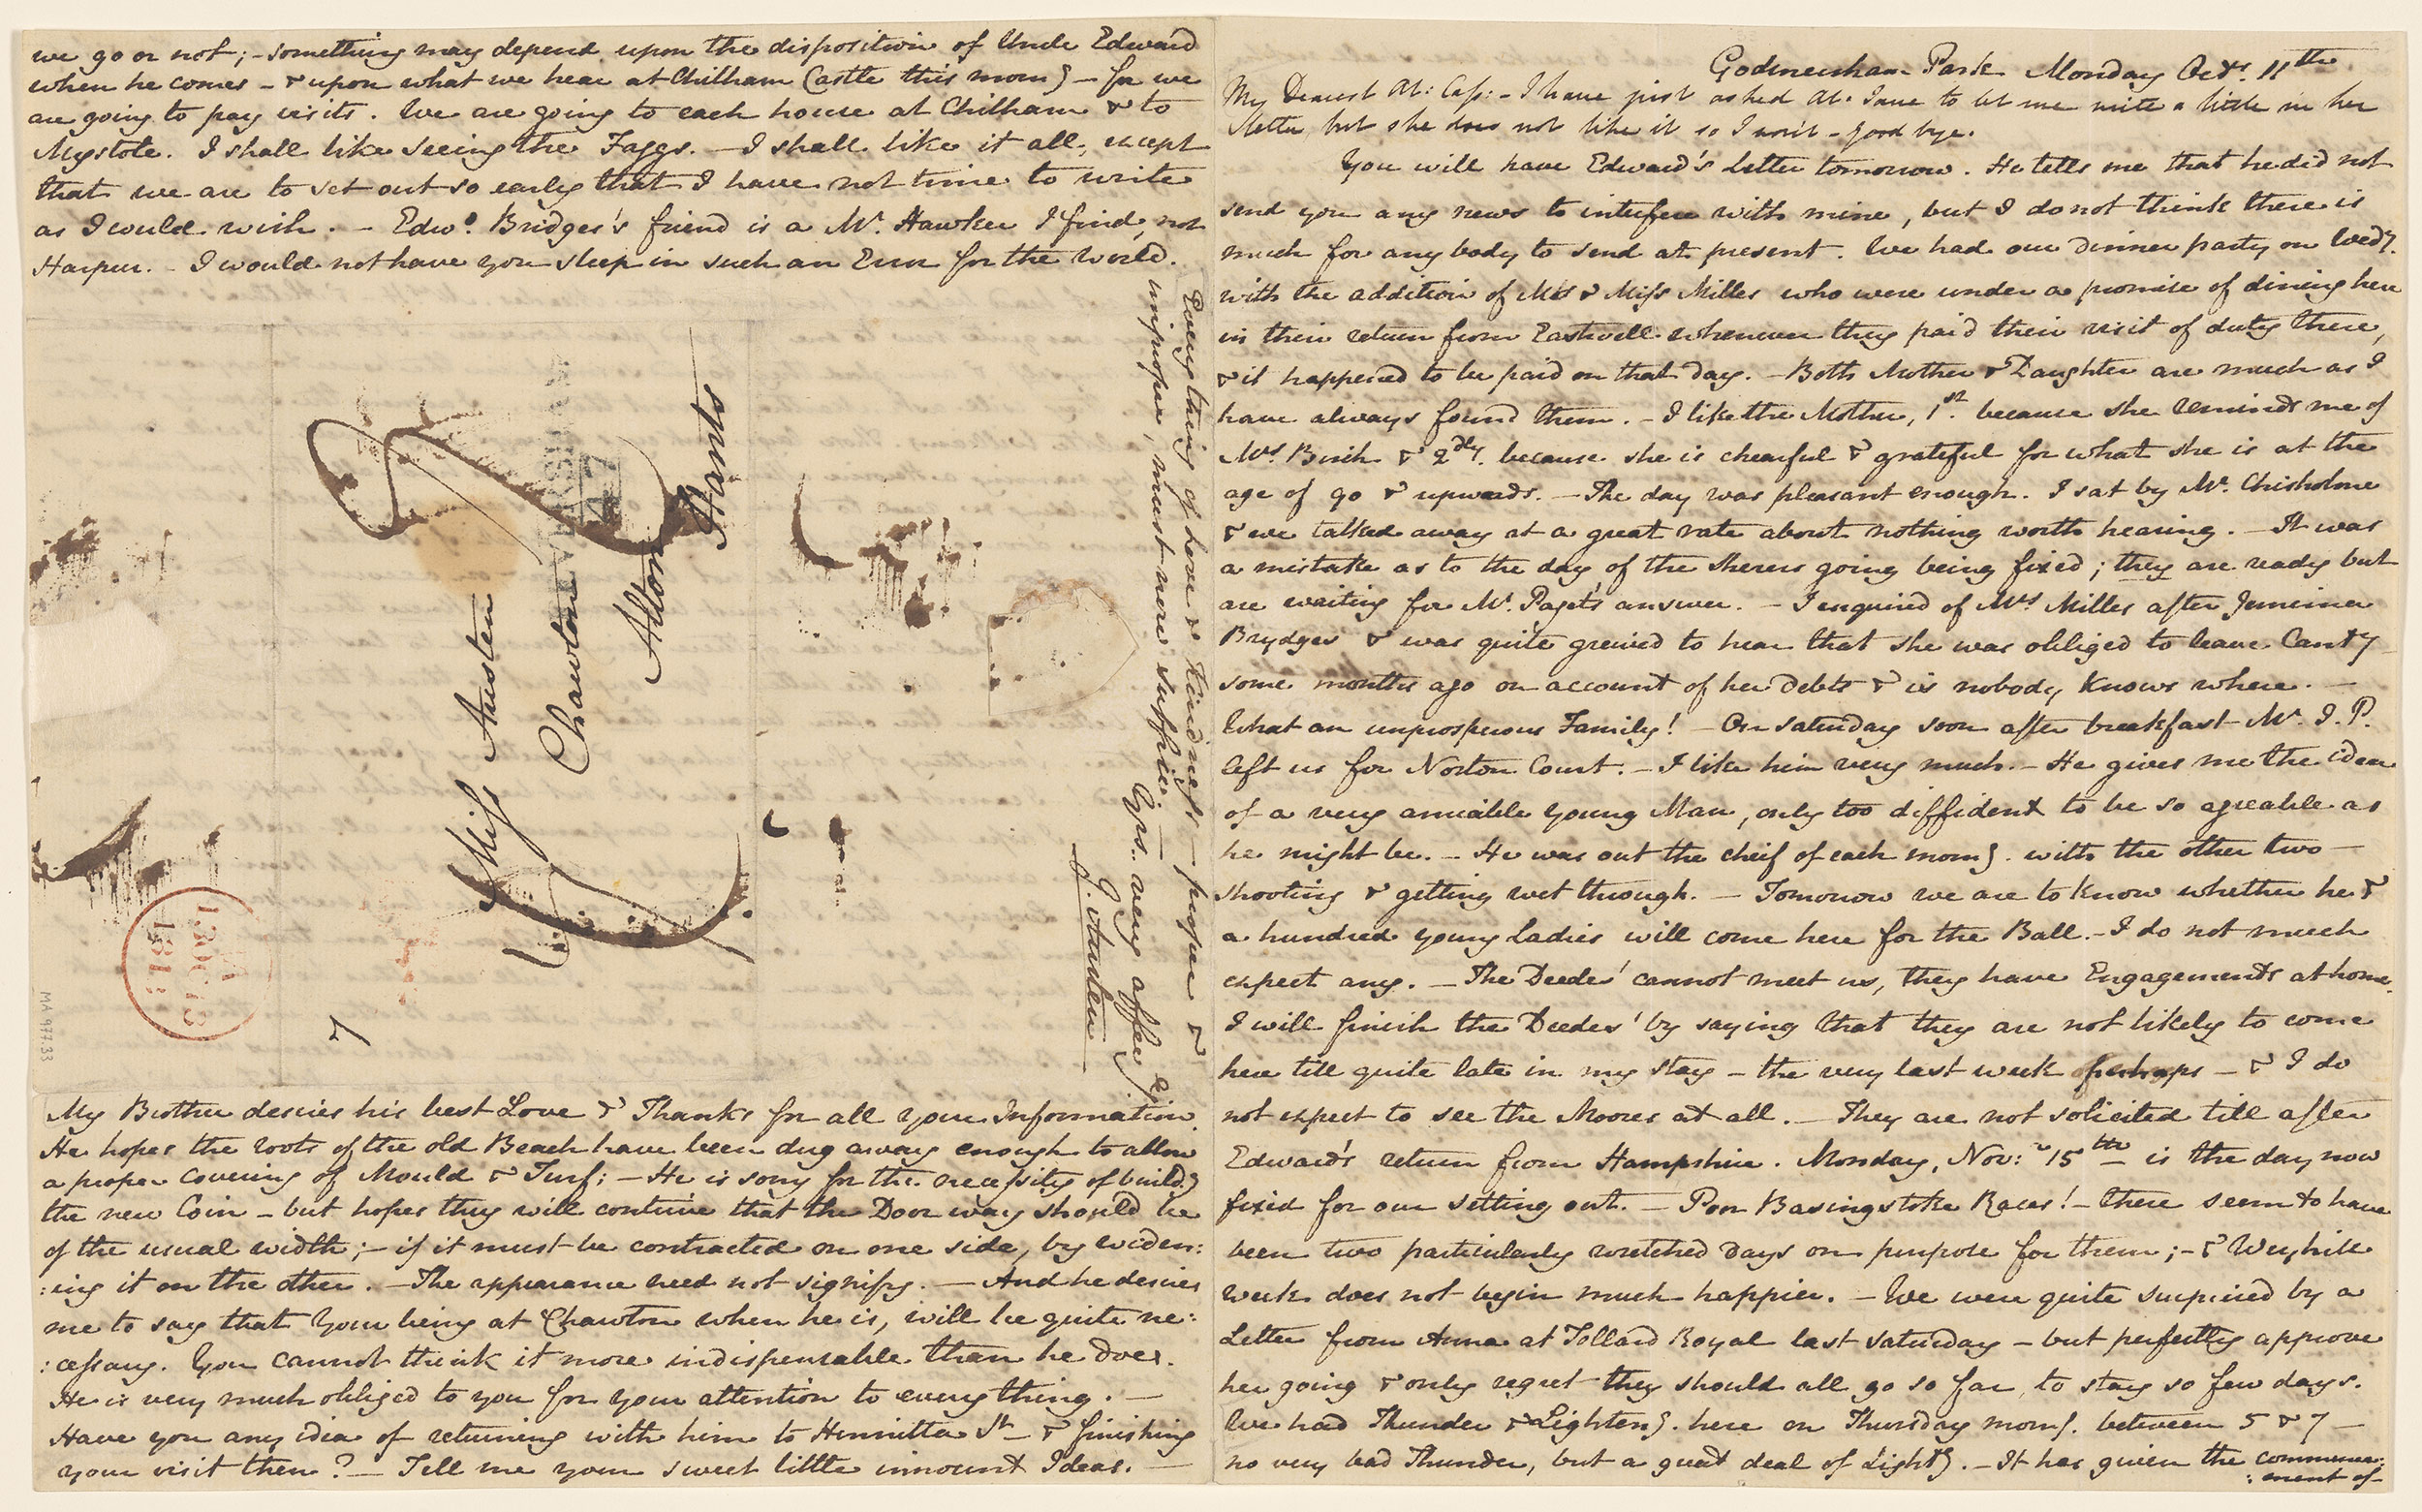 Godmersham Park Monday Octr. 11th
My Dearest At: Cass:- I have just asked At. Jane to let me write a little in her
letter but she does not like it so I won't - good bye.
You will have Edward's Letter tomorrow. He tells me that he did not
send you any news to interfere with mine, but I do not think there is
much for any body to send at present. We had our dinner party on Wedy.
with the addition of Mrs & Miss Milles who were under a promise of dining here
in their return from Eastwell whenever they paid their visit of duty there,
& it happened to be paid on that day. - Both Mother & Daughter are much as I
have always found them. - I like the Mother, 1st. because she reminds me of
Mrs. Birch & 2dly. because she is chearful & grateful for what she is at the
age of 90 & upwards. - The day was pleasant enough. I sat by Mr. Chisholme
& we talked away at a great rate about nothing worth hearing. - It was
a mistake as to the day of the Sherers going being fixed; they are ready but
are waiting for Mr. Paget's answer. - I enquired of Mrs Milles after Jemima
Brydges & was quite greived to hear that she was obliged to leave Canty
some months ago on account of her Debts & is nobody knows where. -
What an unprosperous Family! - On Saturday soon after breakfast Mr. J. P.
left us for Norton Court. - I like him very much. - He gives me the idea
of a very amiable young Man, only too diffident to be so agreable as
he might be. - He was out the cheif of each morng. with the other two -
shooting & getting wet through. - Tomorrow we are to know whether he &
a hundred young Ladies will come here for the Ball. - I do not much
expect any. - The Deedes' cannot meet us, they have Engagements at home.
I will finish the Deedes' by saying that they are not likely to come
here till quite late in my stay - the very last week perhaps - & I do
not expect to see the Moores at all. - They are not solicited till after
Edward's return from Hampshire. Monday, Nov:r 15th is the day now
fixed for our setting out. - Poor Basingstoke Races! - there seem to have
been two particularly wretched Days on purpose for them; - & Weyhill
week does not begin much happier. - We were quite surprised by a
Letter from Anna at Tollard Royal last Saturday - but perfectly approve
her going & only regret they should all go so far, to stay so few days.
We had Thunder & Lighteng. here on Thursday morng. between 5 & 7 -
no very bad Thunder, but a great deal of Lightg. - It has given the commence:
:ment of
we go or not; - something may depend upon the disposition of Uncle Edward
when he comes - & upon what we hear at Chilham Castle this morng - for we
are going to pay visits. We are going to each house at Chilham & to
Mystole. I shall like seeing the Faggs. - I shall like it all, except
that we are to set out so early that I have not time to write
as I would wish. - Edwd. Bridges's friend is a Mr. Hawker I find, not
Harper. - I would not have you sleep in such an Error for the World.
My Brother desires his best Love & Thanks for all your Information.
He hopes the roots of the old Beach have been dug away enough to allow
a proper covering of Mould & Turf: - He is sorry for the necessity of buildg
the new Coin - but hopes they will contrive that the Doorway should be
of the usual width; - if it must be contracted on one side, by widen:
:ing it on the other. - The appearance need not signify. - And he desires
me to say that Your being at Chawton when he is, will be quite ne:
:cessary. You cannot think it more indispensable than he does.
He is very much obliged to you for your attention to everything. -
Have you any idea of returning with him to Henrietta St & finishing
your visit then? - Tell me your sweet little innocent Ideas. -
Everything of Love & Kindness - proper &
improper, must now suffice. -
Yrs. very affecly
J. Austen
Miss Austen
Chawton
Alton
Hants
7
47
A
13 OC 13
1813
MA 977.33